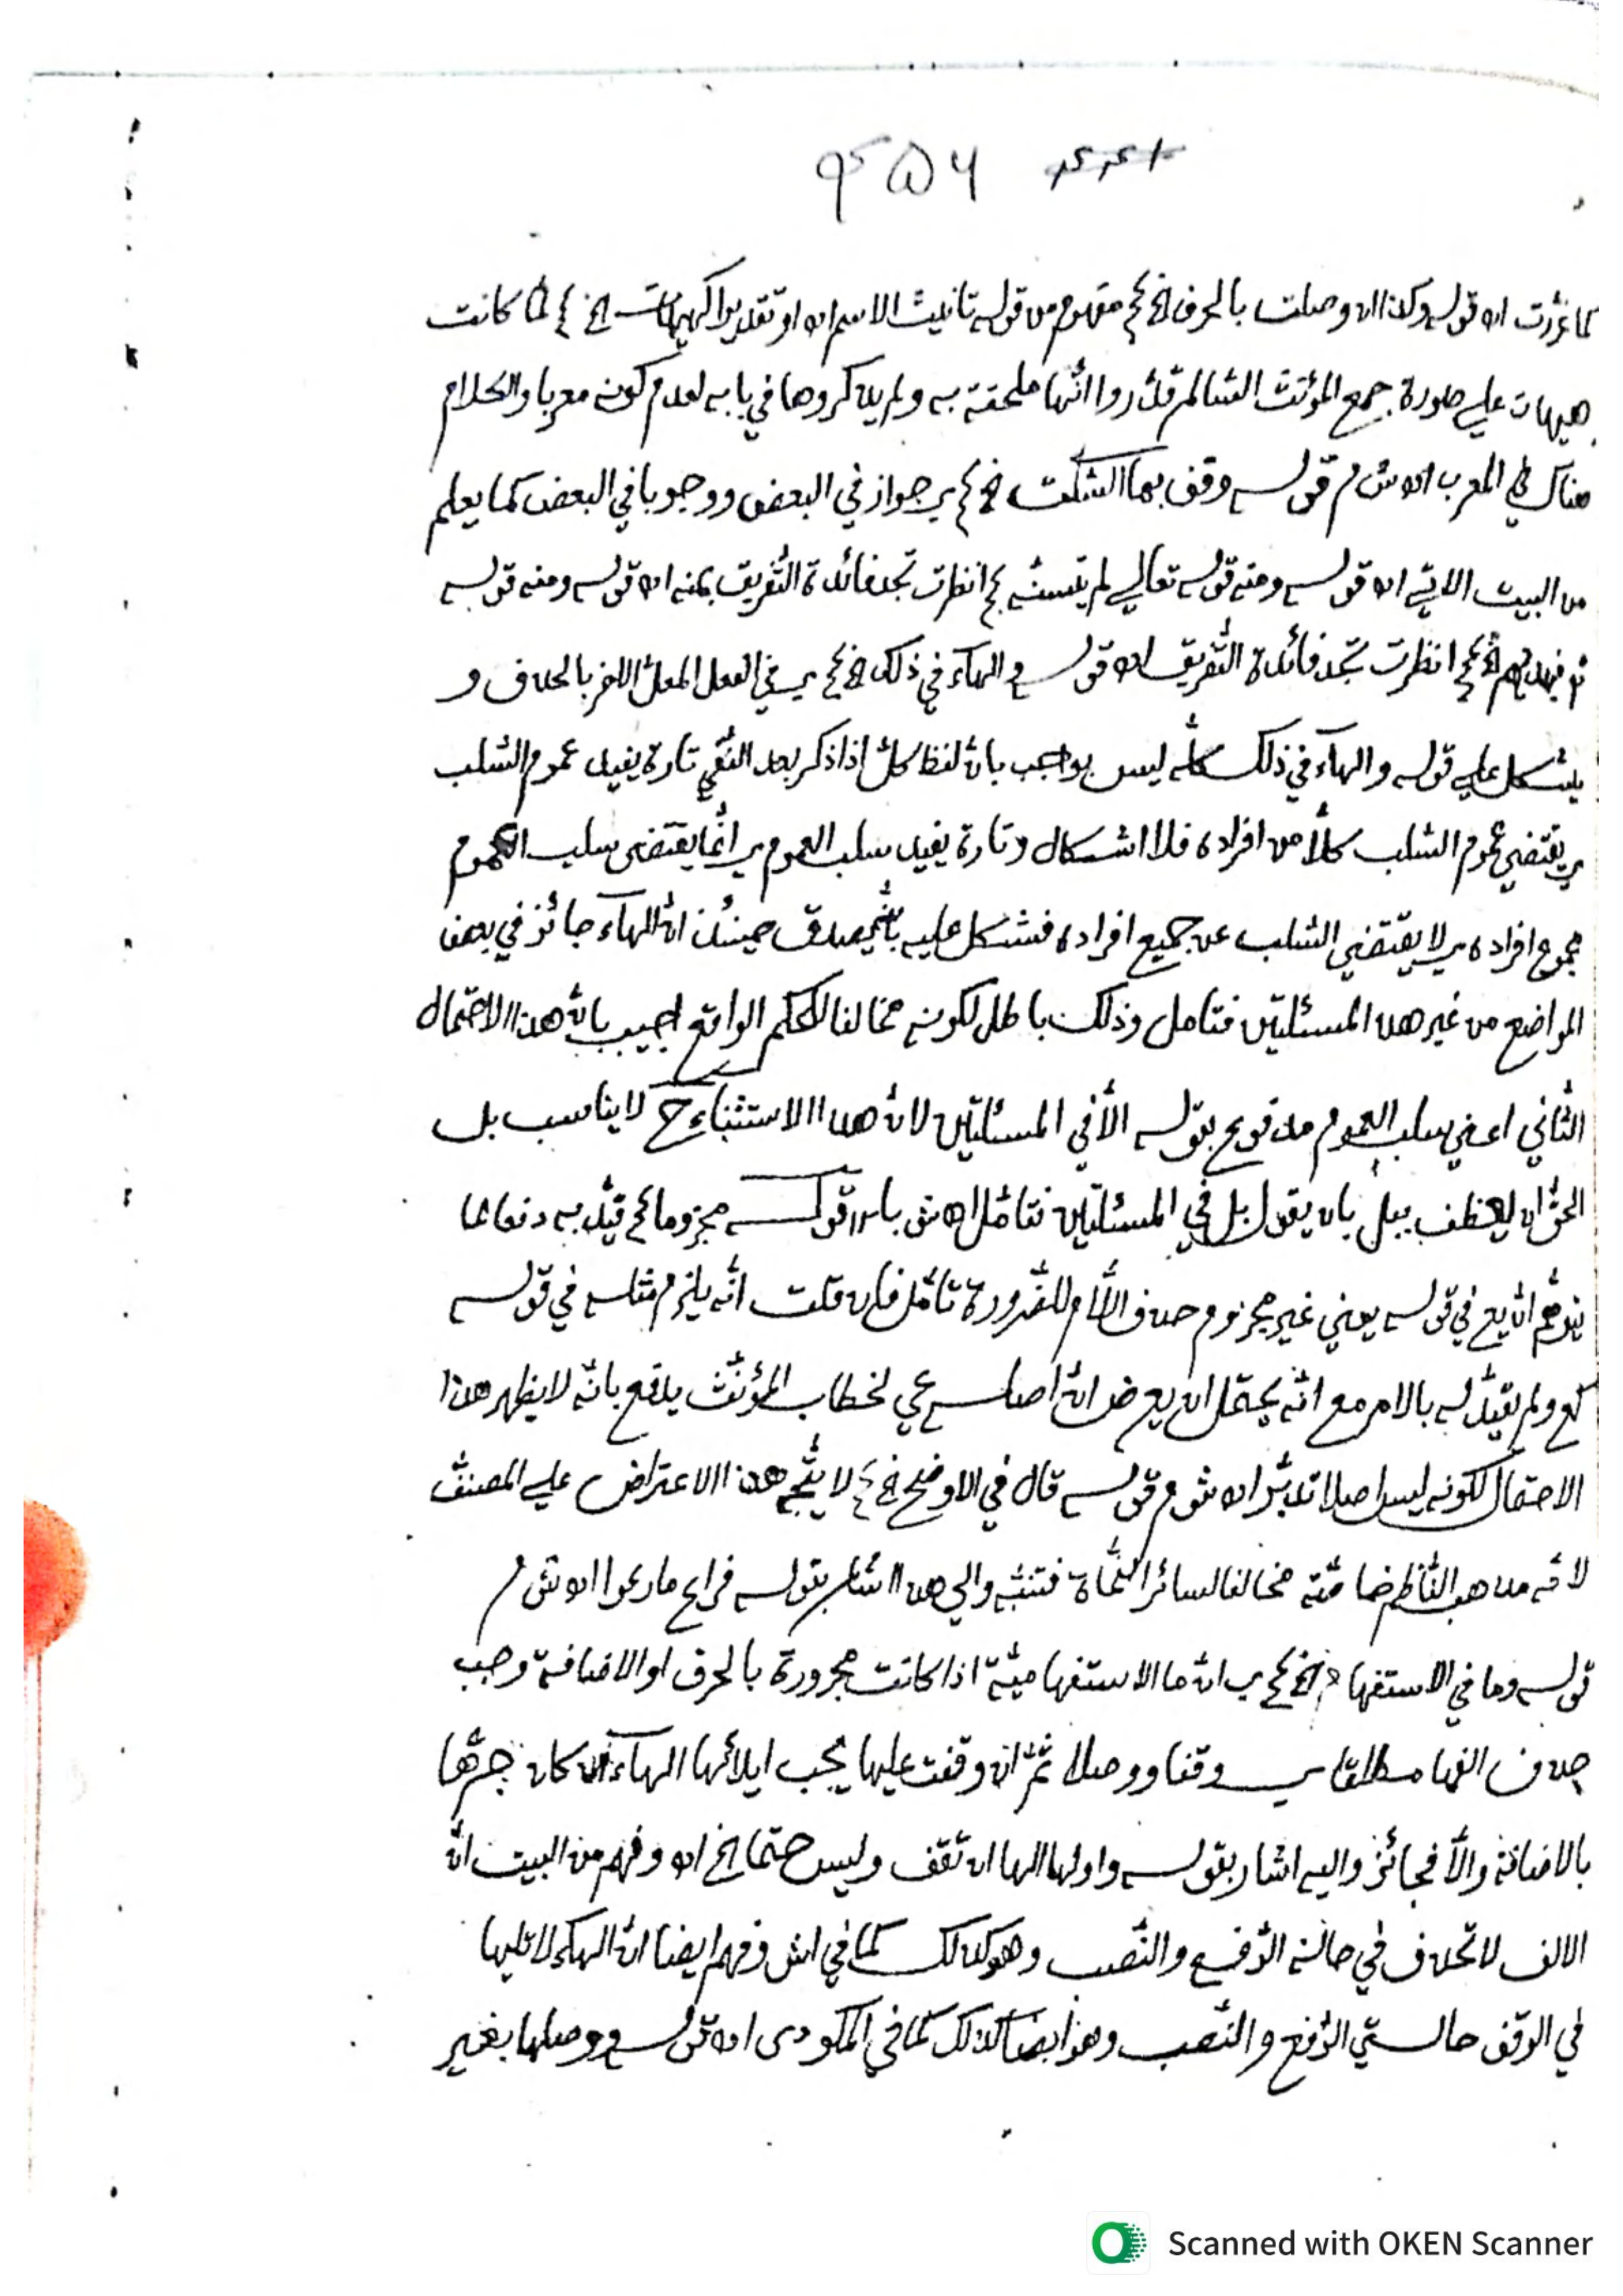 ۹۵۶
كما غزرت اه قوله وكذا ان وصلت بالحرف الخ مفهوم من قوله تانيث الاسم اه او تقديرا كهيهات الخ لما كانت
هيهات على صورة جمع المؤنث السّالم قدّروا انّها ملحقة به ولم يذكروها في بابه لعدم كونه معربا والكلام
هناك في المعرب اه ش م قوله وقف بها السّكت الخ ي جواز في البعض ووجوبا في البعض كما يعلم
من البيت الاتي اه قوله ومنه قوله تعالى لم يتسنّه انظرت تجد فائدة التّفريق بمنه اه قوله ومنه قوله
انظرت تجد فائدة التّفريق اه قوله والهآء في ذلك الخ ي في الفعل المعلّ الاخر بالحذف و
يشكل على قوله والهآء في ذلك كلّه ليس بواجب بانّ لفظ كلّ اذا ذكر بعد النّفي تارة يفيد عموم السّلب
ي يقتضي عموم السّلب كلّا من افراده فلا اشكال وتارة يفيد سلب العموم ي انّما يقتضى سلب العموم
مجموع افراده ي لا يقتضي السّلب عن جميع افراده فشكل عليه بانّه يصدق حينئذ انّ الهآء جائز في بعض
المواضع من غير هذا المسئلتين فتامل وذلك باطل لكونه مخالفا للحكم الواقع اجيب بانّ هذا الاحتمال
الثّاني اعني سلب العموم مدفوع بقوله الّا في المسئلتين لانّ هذا الاستثناء ح لا يناسب بل
الحقّ ان يعطف ببل بان يقول بل في المسئلتين فتامّل اه ش باس قوله مجزوما قيّد به دفعا لما
يتوهّم انّ يع في قوله يعني غير مجزوم حذف اللّام للضّرورة تامّل فان قلت انّه يلزم مثله في قوله
كع ولم يقيّد له بالامر مع انّه يحتمل ان يعرض انّ اصله عي لخطاب المؤنّث يدفع بانّه لا يظهر هذا
الاحتمال لكونه ليس اصلا تدبّر اه ش م قوله قال في الاوضح الخ لا يتّجه هذا الاعتراض على المصنّف
لانّه مذهب النّاظم خاصّة مخالفا لسائر النّحاة فتنبّه والى هذا اشار بقوله فراع ما رعوا اه ش م
قوله وما في الاستفهام الخ ي انّ ما الاستفهاميّة اذا كانت مجرورة بالحرف او الاضافة وجب
حذف الفها مطلقا ي وقفا ووصلا ثمّ ان وقفت عليها يجب ايلائها الهآء ان كان جرّها
بالاضافة والّا فجائز واليه اشار بقوله واولها الها ان تقف وليس حتما الخ اه وفهم من البيت انّ
الالف لا تحذف في حالة الرّفع والنّصب وهو كذلك كما في اش وفهم ايضا انّ الهآء لا تليها
في الوقف حالتي الرّفع والنّصب وهو ايضا كذلك كما في المكودى اه قوله ووصلها بغير
Scanned with OKEN Scanner